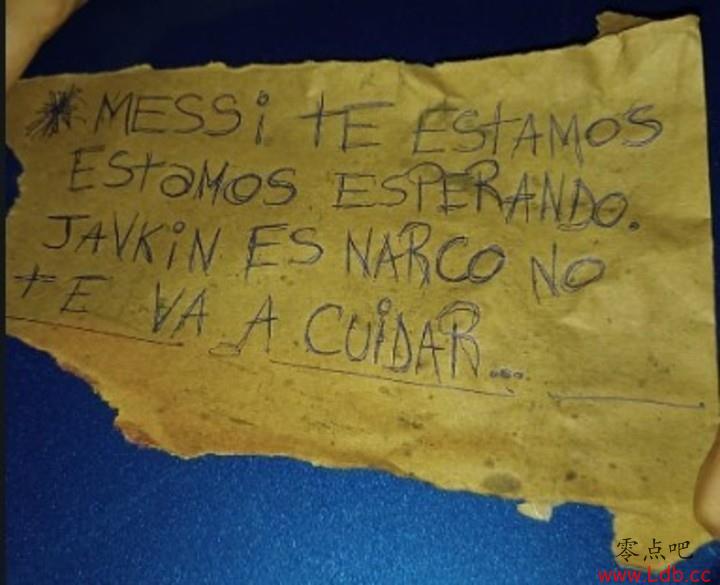 MESSi tE ESTAMOS
EStaMOS ESPERANDO.
JAVKiN ES NARCO NO
tE VA A CUiDAR....
零点吧
www.Ldb.cc